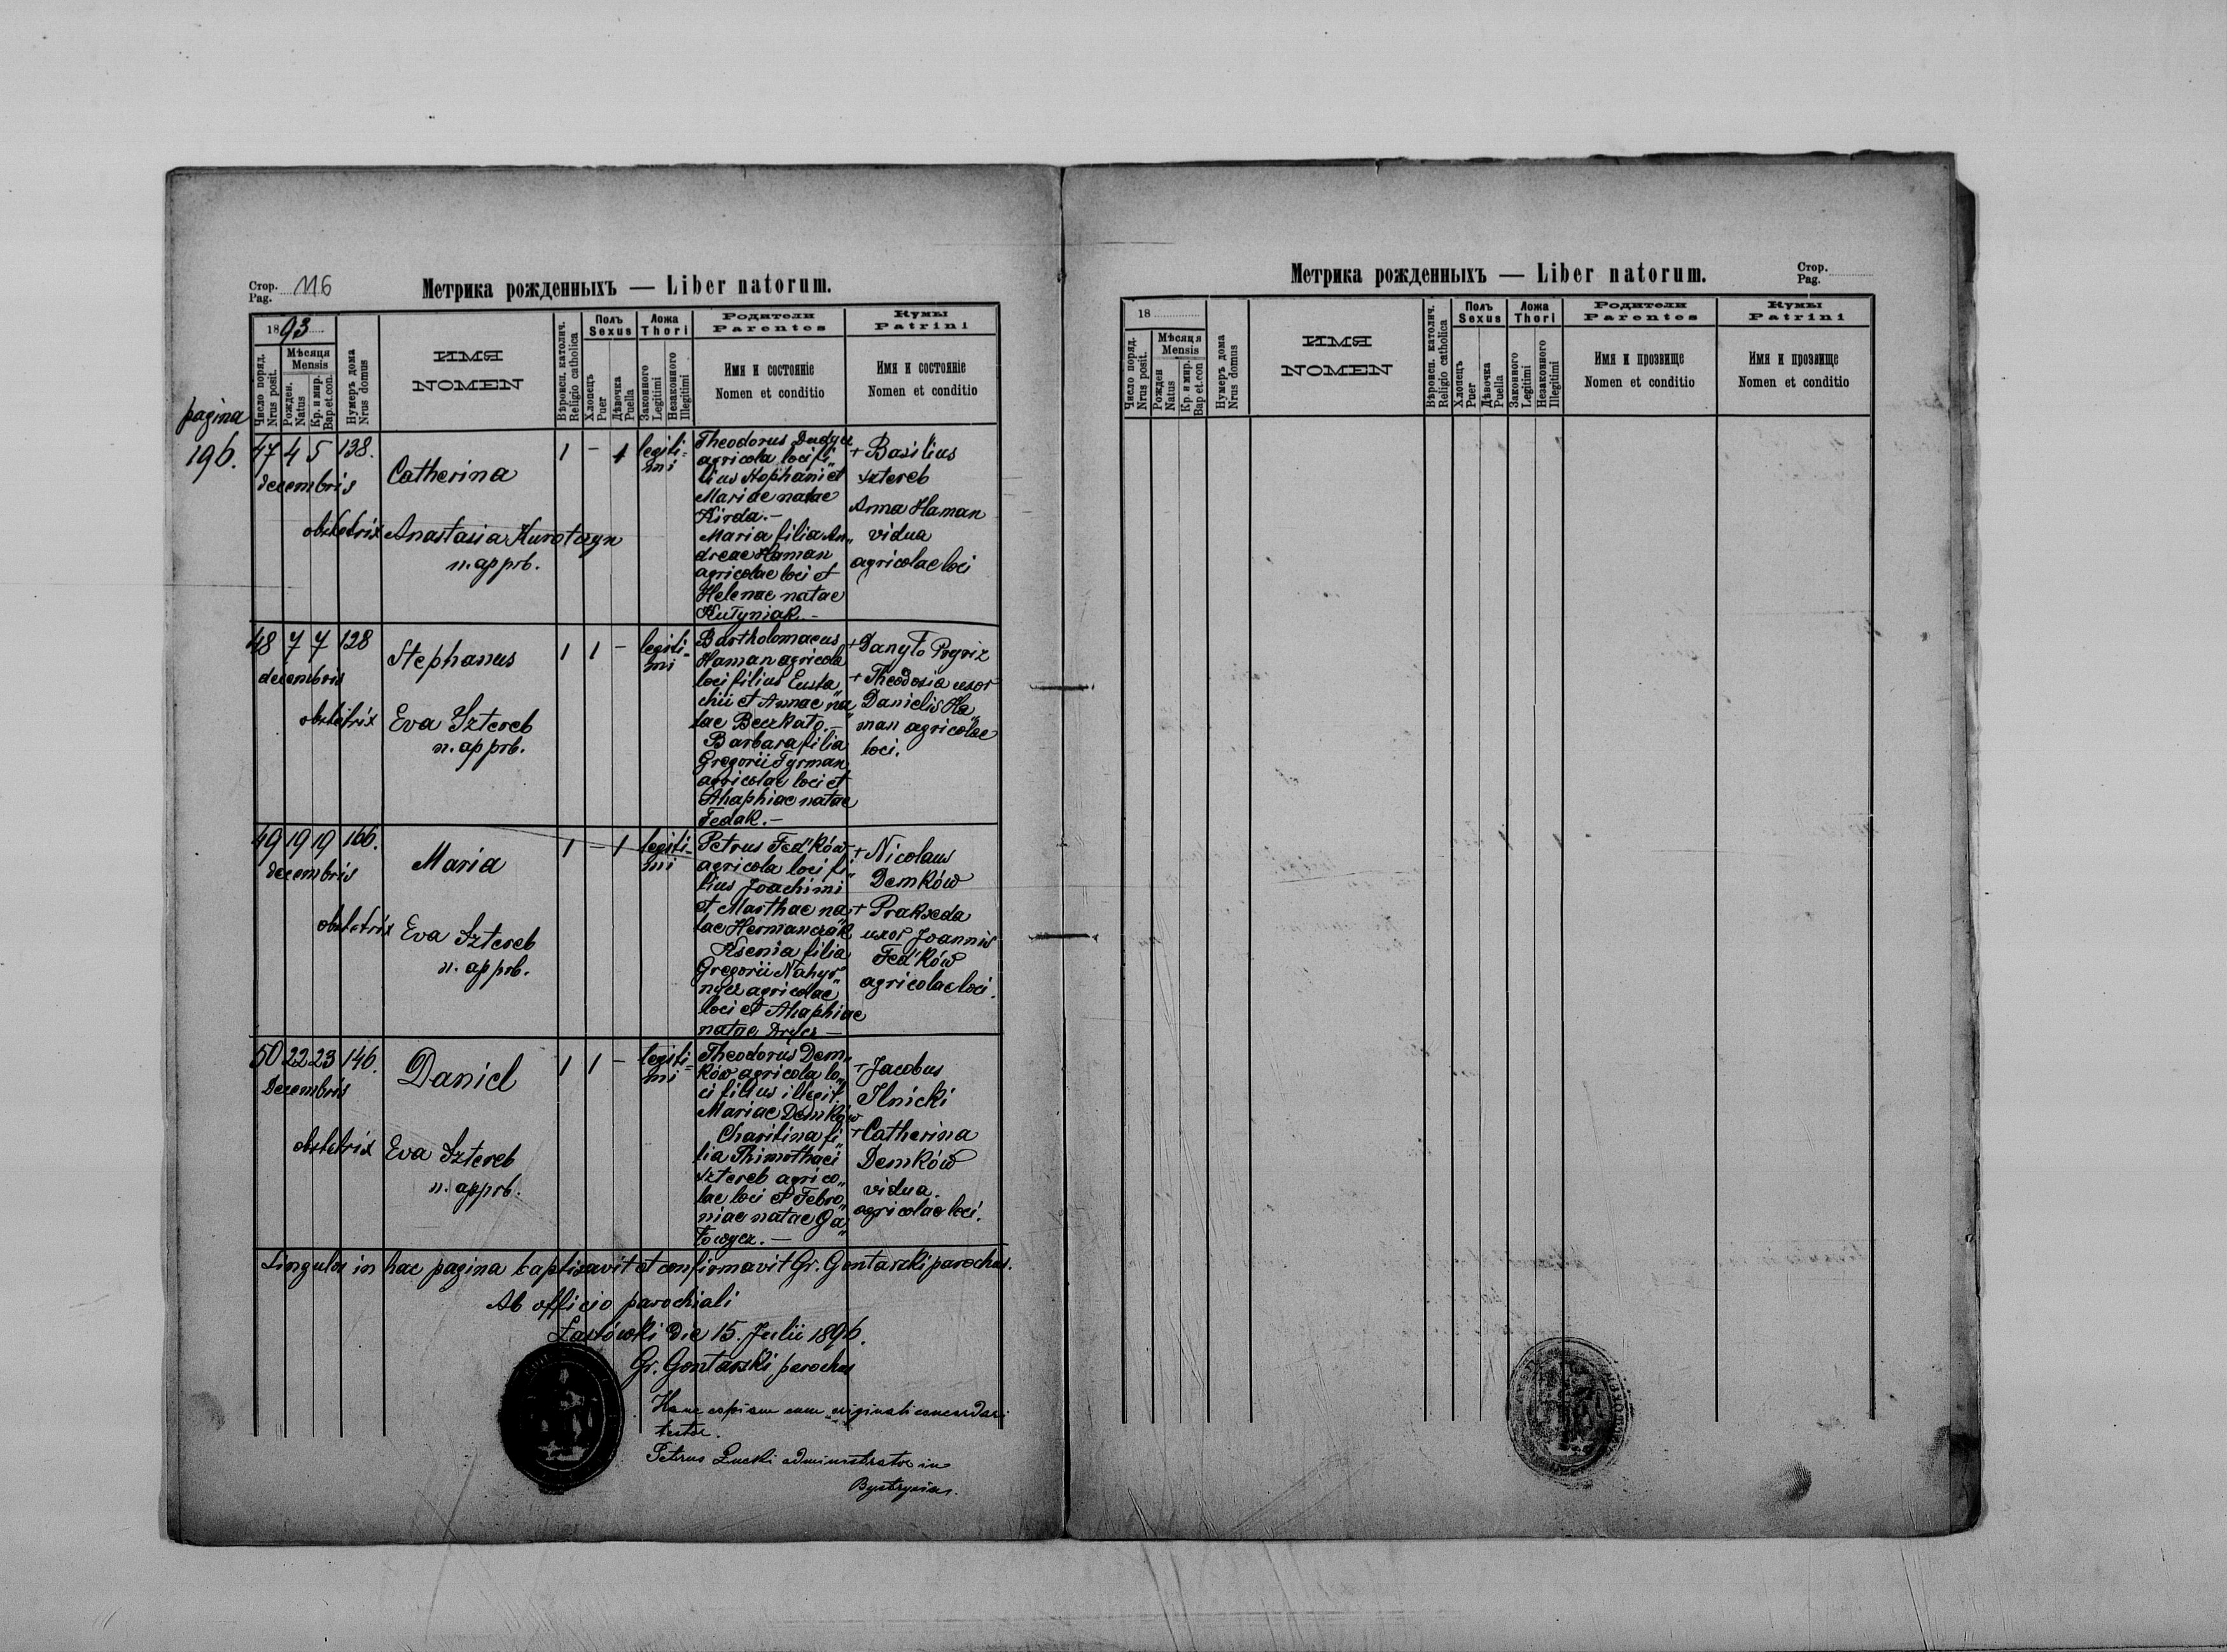 Стор.
Pag. 116
Метрика рожденныхъ — Liber natorum.
1893
Число поряд.
Nrus posit.
Мѣсяця
Mensis
Рожден.
Natus
Кр. и мир.
Bap. et. con.
Нумеръ дома
Nrus domus
ИМЯ
NOMEN
Вѣроисп. католич.
Religio catholica
Полъ
Sexus
Хлопецъ
Puer
Дѣвочка
Puella
Ложа
Thori
Законного
Legitimi
Незаконного
Illegitimi
Родители
Parentes
Имя и состояніе
Nomen et conditio
Кумы
Patrini
Имя и состояніе
Nomen et conditio
pagina
196.
47 4 5 138.
decembris
Catherina
obstetrix Anastasia Kurotczyn
n. apprb.
1 - 1
legiti-
mi
Theodorus Dudycz
agricola loci fi„
lius Stephani et
Mariae natae
Kirda. —
Maria filia An„
dreae Haman
agricolae loci et
Helenae natae
Kutyniak. —
+ Basilius
Sztereb
Anna Haman
vidua
agricolae loci
48 7 7 128
decembris
Stephanus
obstetrix Eva Sztereb
n. apprb.
1 1 -
legiti-
mi
Bartholomaeus
Haman agricola
loci filius Eusta„
chii et Annae na„
tae Beczkato. —
Barbara filia
Gregorii Tyrman
agricolae loci et
Ahaphiae natae
Fedak. —
+ Danyło Pryriz
+ Theodosia uxor
Danielis Ha„
man agricolae
loci.
49 19 19 166.
decembris
Maria
obstetrix Eva Sztereb
n. apprb.
1 - 1
legiti-
mi
Petrus Fed'ków
agricola loci fi„
lius Joachimi
et Marthae na„
tae Hermanczak
Ksenia filia
Gregorii Nahyr„
nycz agricolae
loci et Ahaphiae
natae Drycz —
+ Nicolaus
Demków
+ Prakseda
uxor Joannis
Fed'ków
agricolae loci.
50 22 23 146.
Decembris
Daniel
obstetrix Eva Sztereb
n. apprb.
1 1 -
legiti-
mi
Theodorus Dem„
ków agricola lo„
ci filius illegit.
Mariae Demków
Charitina fi„
lia Thimothaei
Sztereb agrico„
lae loci et Febro„
niae natae Ga„
łowycz. —
+ Jacobus
Ilnicki
+ Catherina
Demków
vidua.
agricolae loci.
Singulos in hac pagina baptisavit et confirmavit Gr. Gontarski parochus.
Ab officio parochiali
Łastówki die 15. Julii 1896.
Gr. Gontarski parochus
Hanc copiam cum originali concordari
testor.
Petrus Łucki administrator in
Bystrycia.
Метрика рожденныхъ — Liber natorum.
Стор.
Pag.
18
Число поряд.
Nrus posit.
Мѣсяця
Mensis
Рожден
Natus
Кр. и мир.
Bap et. con
Нумеръ дома
Nrus domus
ИМЯ
NOMEN
Вѣроисп. католич.
Religio catholica
Полъ
Sexus
Хлопецъ
Puer
Дѣвочка
Puella
Ложа
Thori
Законного
Legitimi
Незаконного
Illegitimi
Родители
Parentes
Имя и прозвище
Nomen et conditio
Кумы
Patrini
Имя и прозвище
Nomen et conditio